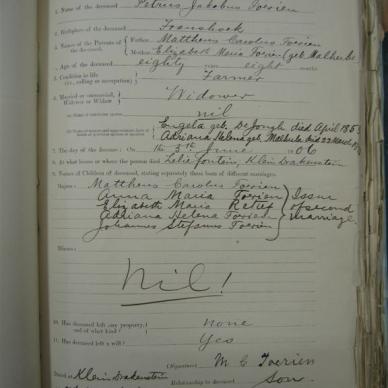 1. Name of the deceased Petrus Jakobus Toerien
2. Birthplace of the deceased Franshoek
3. Names of the Parents of the deceased. Father Matthews Carolus Toerien
Mother Elizabeth Maria Toerien (geb Malherbe)
4. Age of the deceased eighty years eight months
5. Condition in life (i.e., calling or occupation) Farmer
6. Married or unmarried, Widower or Widow Widower
nil
Engela geb. De Jongh died April 185
Adriana Helena geb. Malherbe died 22 March
7. The day of the decease: On the 3rd June 1906
8. At what house or where the person died Lelie fontein, Klein Drakenstein
9. Names of Children of deceased, stating separately those born of different marriages.
Majors: Matthews Carolus Toerien
Anna Maria Toerien
Elizabeth Maria Retief
Adriana Helena Toerien
Johannes Stefanus Toerien
Issue of second marriage
Minors:
Nil!
10. Has deceased left any property; and of what kind? none
11. Has deceased left a will? Yes
(Signature) M C Toerien
Dated at Klein Drakenstein Relationship to deceased Son